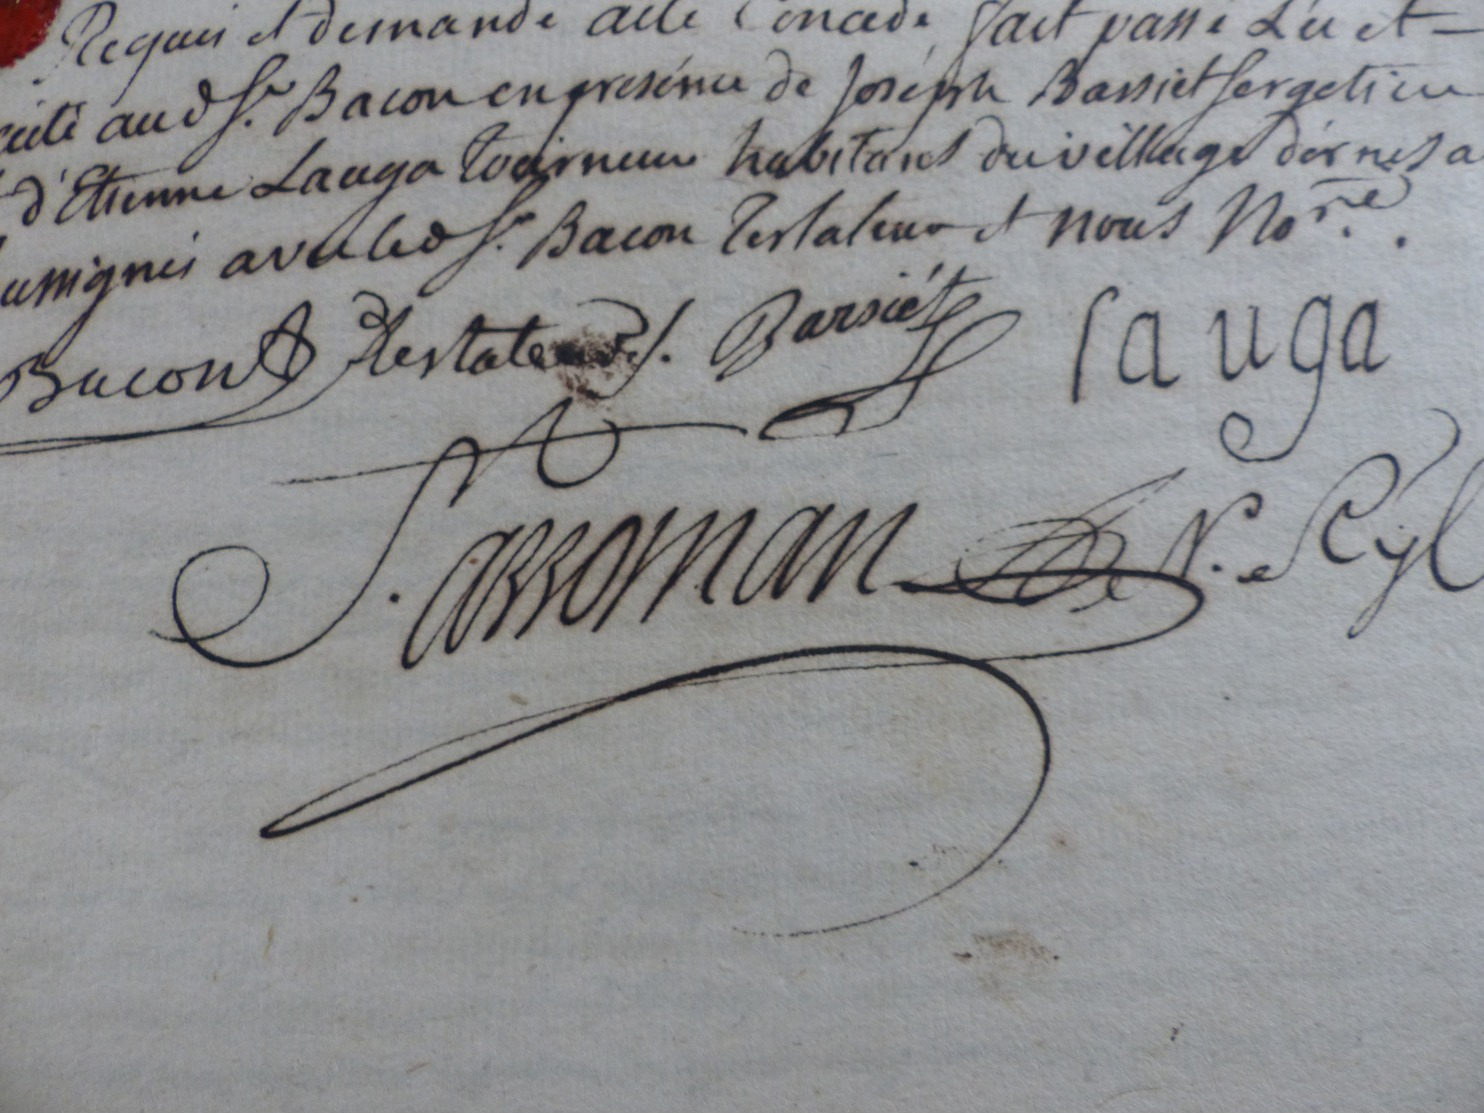 Requis et demandé acte Concédé fait passé Leu et -
cité aud Sr. Bacon en presénce de Joséph Bassiét sergetieur
d'Etienne Lauga Tourneur habitans du village dórnes a
ussignés avec led Sr. Bacon Testateur et nous Nore. .
Bacon Testateur Barsiét Lauga
Sarroman Nre Ryl